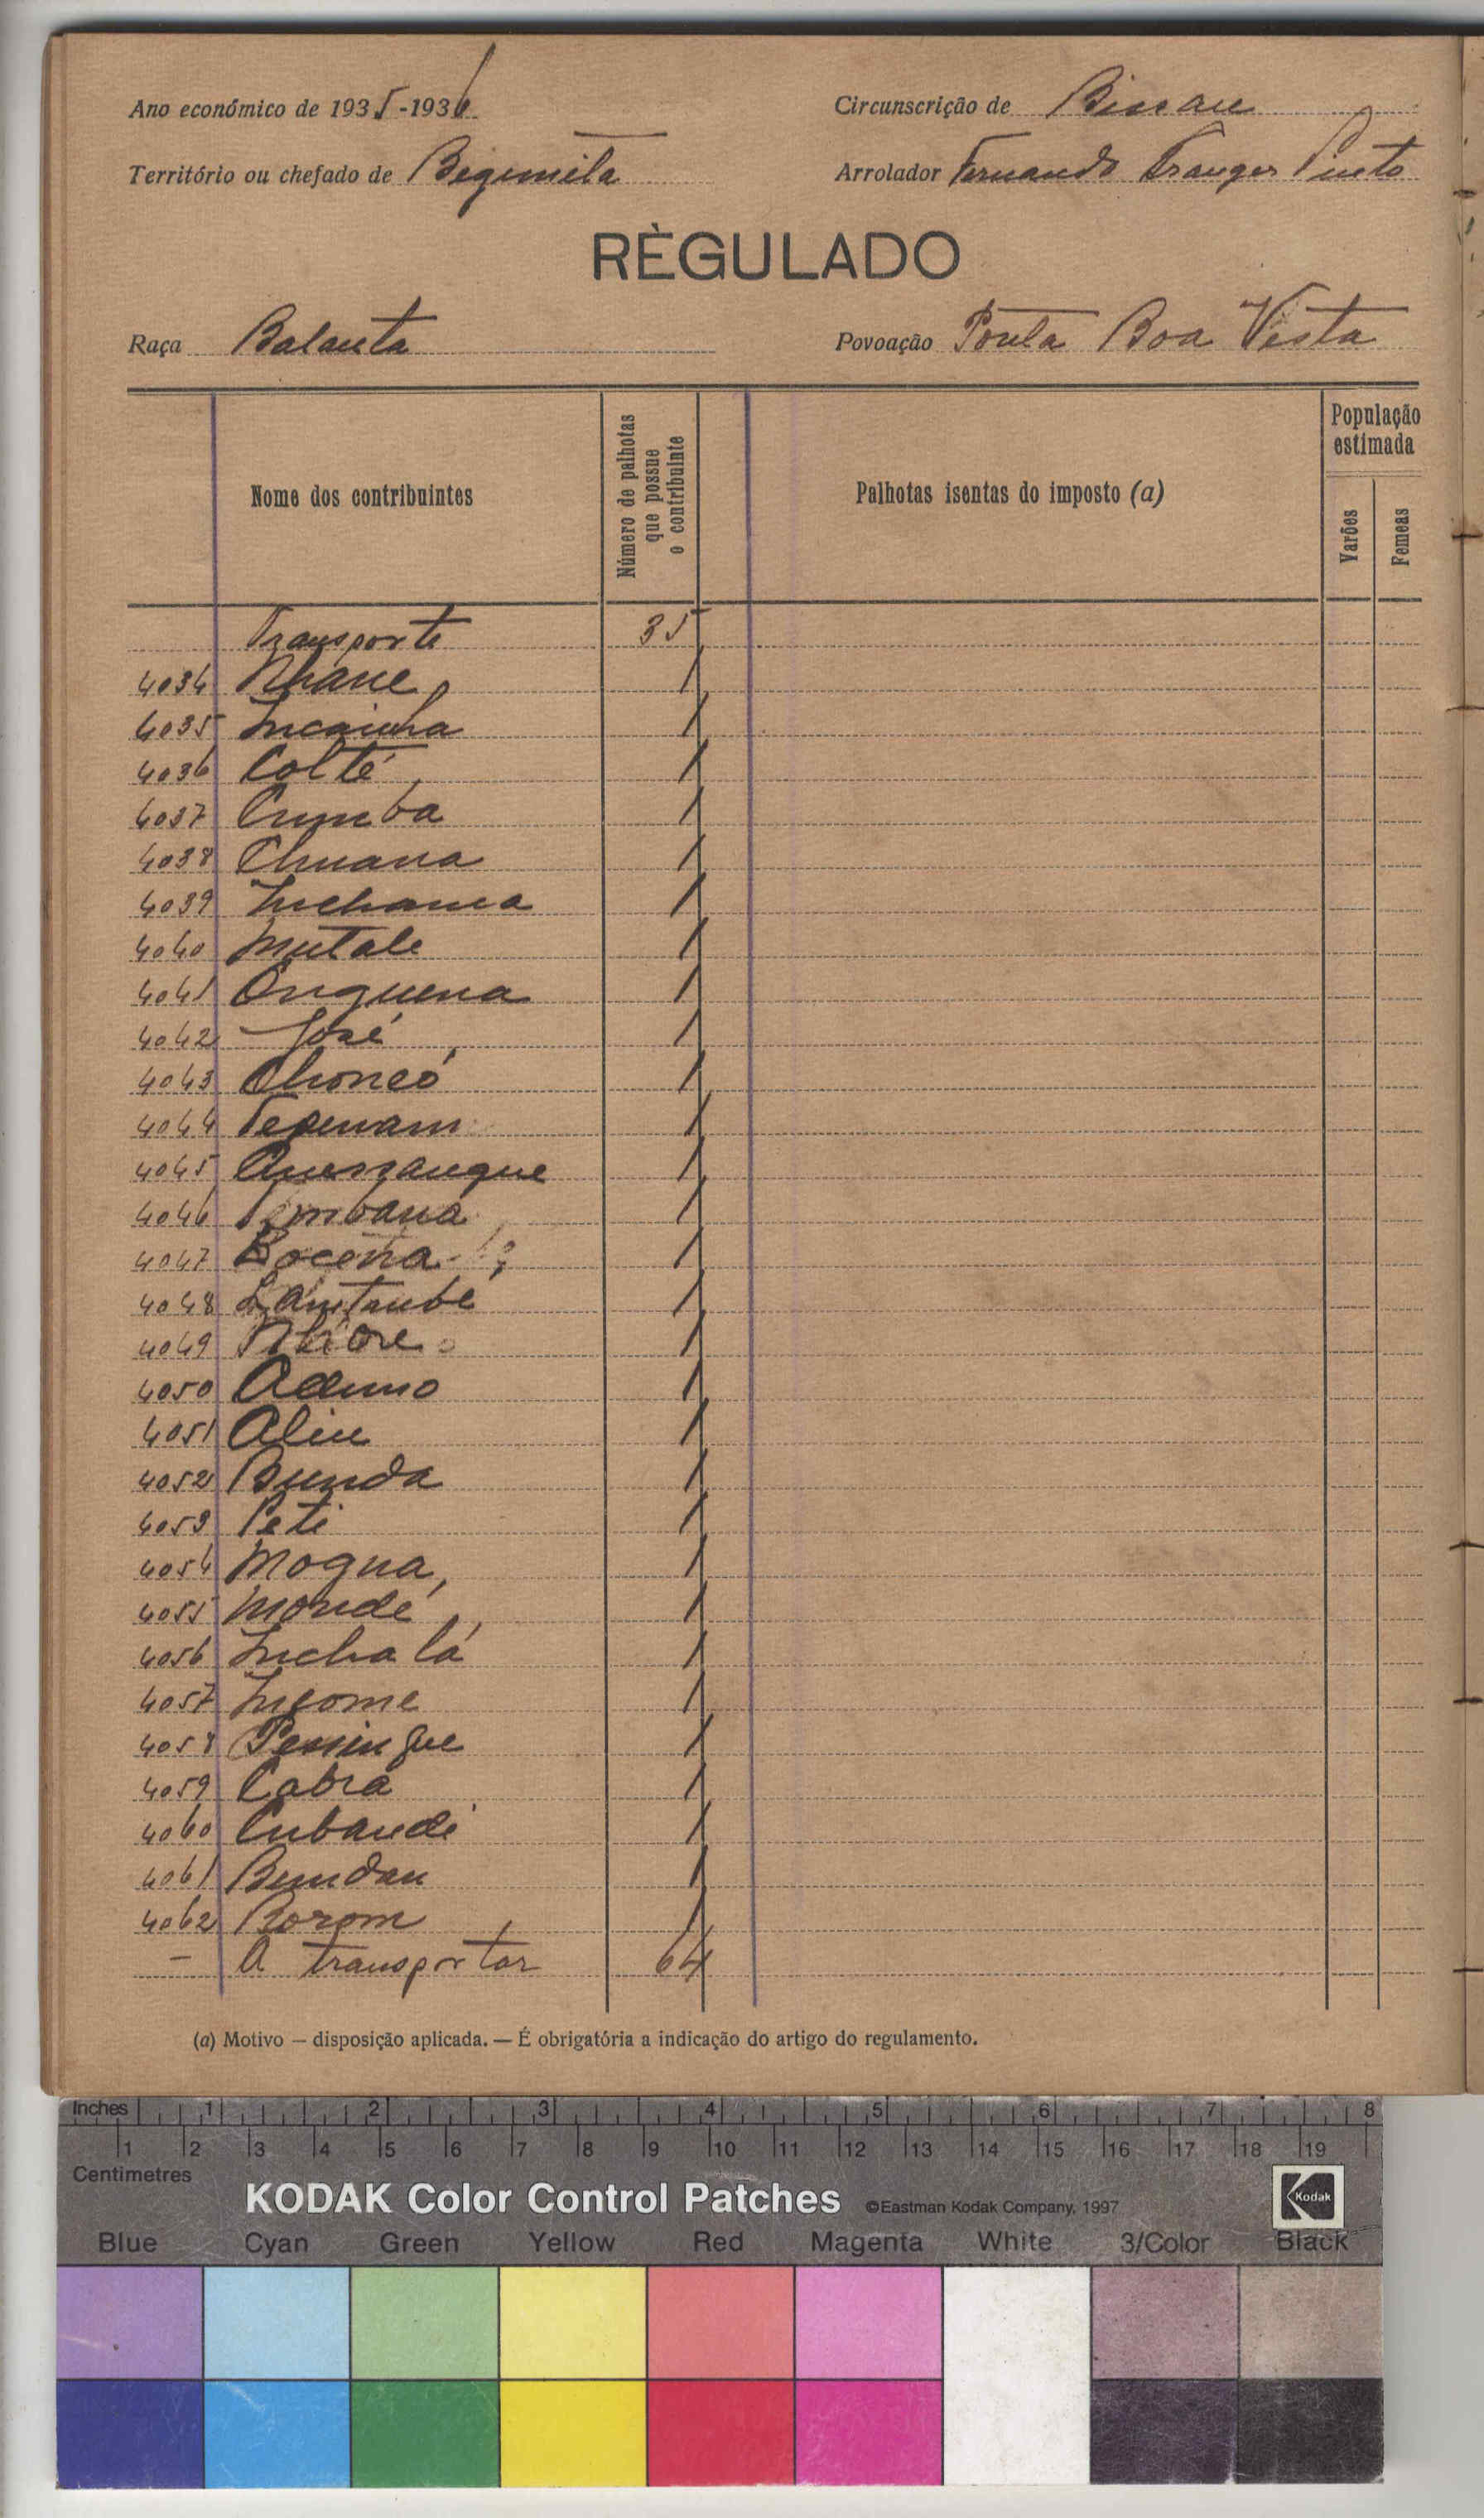 Ano económico de 1935-1936 Circunscrição de Bissau
Território ou chefado de Begimita Arrolador Fernando Pinto
RÈGULADO
Raça Balanta Povoação Ponta Boa Vista
Nome dos contribuintes
Número de palhotas que possue o contribuinte
Palhotas isentas do imposto (a)
População estimada
Varões
Femeas
Transporte 35
4034 Nhane 1
4035 1
4036 Colté 1
4037 Cumba 1
4038 Chuana 1
4039 Inchama 1
4040 Mutale 1
4041 Onguena 1
4042 José 1
4043 1
4044 1
4045 1
4046 1
4047 1
4048 1
4049 1
4050 1
4051 Aliu 1
4052 Bunda 1
4053 Peti 1
4054 Mogna 1
4055 Mondé 1
4056 Incha lá 1
4057 Ingome 1
4058 1
4059 Cabrá 1
4060 Cubande 1
4061 Bundan 1
4062 Rorom 1
— A transportar 64
(a) Motivo — disposição aplicada. — É obrigatória a indicação do artigo do regulamento.
Inches 1 2 3 4 5 6 7 8
1 2 3 4 5 6 7 8 9 10 11 12 13 14 15 16 17 18 19
Centimetres
KODAK Color Control Patches ©Eastman Kodak Company, 1997 Kodak
Blue Cyan Green Yellow Red Magenta White 3/Color Black